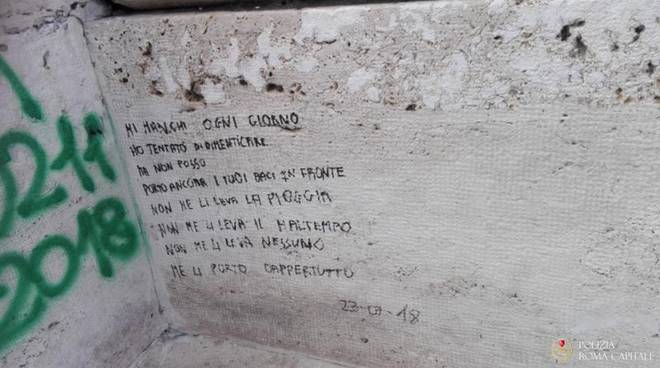 MI MANCHI OGNI GIORNO
HO TENTATO DI DIMENTICARE
MA NON POSSO
PORTO ANCORA I TUOI BACI IN FRONTE
NON ME LI LEVA LA PIOGGIA
NON ME LI LEVA IL MALTEMPO
NON ME LI LEVA NESSUNO
ME LI PORTO DAPPERTUTTO
23-07-18
0211
2018
POLIZIA
ROMA CAPITALE